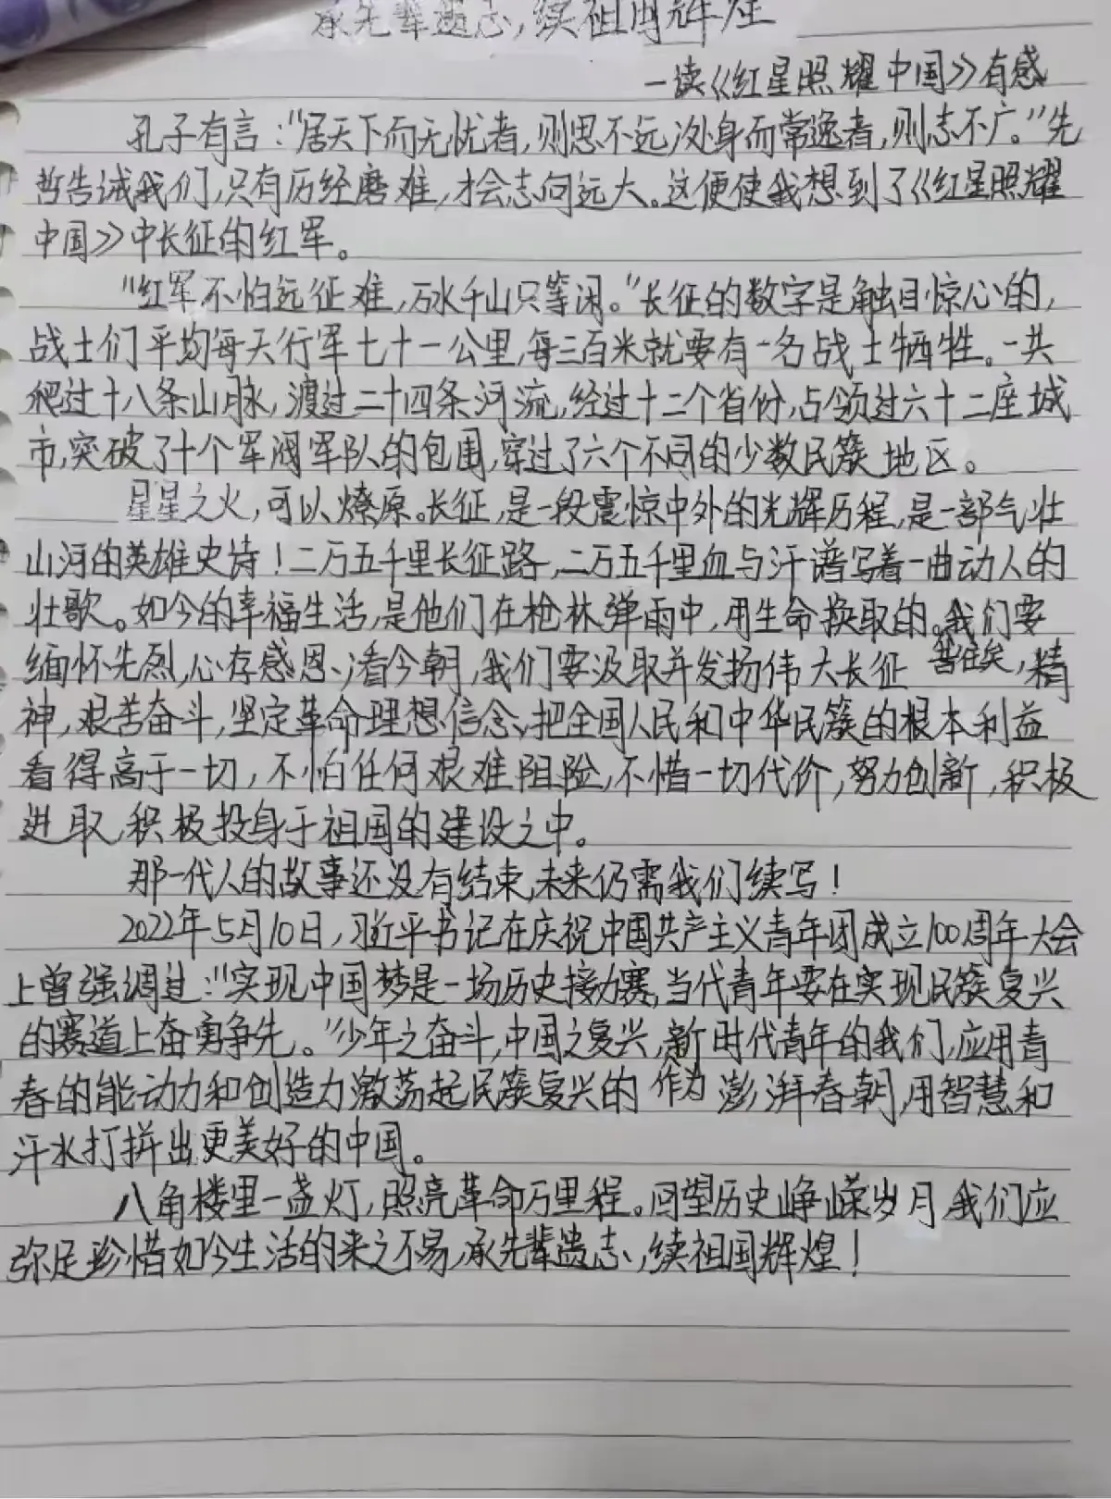 承先辈遗志，续祖国辉煌
—读《红星照耀中国》有感
孔子有言：“居天下而无忧者，则思不远，处身而常逸者，则志不广。”先
哲告诫我们，只有历经磨难，才会志向远大。这便使我想到了《红星照耀
中国》中长征的红军。
“红军不怕远征难，万水千山只等闲。”长征的数字是触目惊心的，
战士们平均每天行军七十一公里，每三百米就要有一名战士牺牲。一共
爬过十八条山脉，渡过二十四条河流，经过十二个省份，占领过六十二座城
市，突破了十个军阀军队的包围，穿过了六个不同的少数民族地区。
星星之火，可以燎原。长征，是一段震惊中外的光辉历程，是一部气壮
山河的英雄史诗！二万五千里长征路，二万五千里血与汗谱写着一曲动人的
壮歌。如今的幸福生活，是他们在枪林弹雨中，用生命换取的。我们要
缅怀先烈，心存感恩、看今朝，我们要汲取并发扬伟大长征 昔往矣，精
神，艰苦奋斗，坚定革命理想信念、把全国人民和中华民族的根本利益
看得高于一切，不怕任何艰难阻险，不惜一切代价，努力创新，积极
进取，积极投身于祖国的建设之中。
那一代人的故事还没有结束，未来仍需我们续写！
2022年5月10日，习近平书记在庆祝中国共产主义青年团成立100周年大会
上曾强调过：“实现中国梦是一场历史接力赛，当代青年要在实现民族复兴
的赛道上奋勇争先。”少年之奋斗，中国之复兴，新时代青年的我们，应用青
春的能动力和创造力激荡起民族复兴的 作为 澎湃春朝，用智慧和
汗水打拼出更美好的中国。
八角楼里一盏灯，照亮革命万里程。回望历史峥嵘岁月，我们应
弥足珍惜如今生活的来之不易，承先辈遗志，续祖国辉煌！